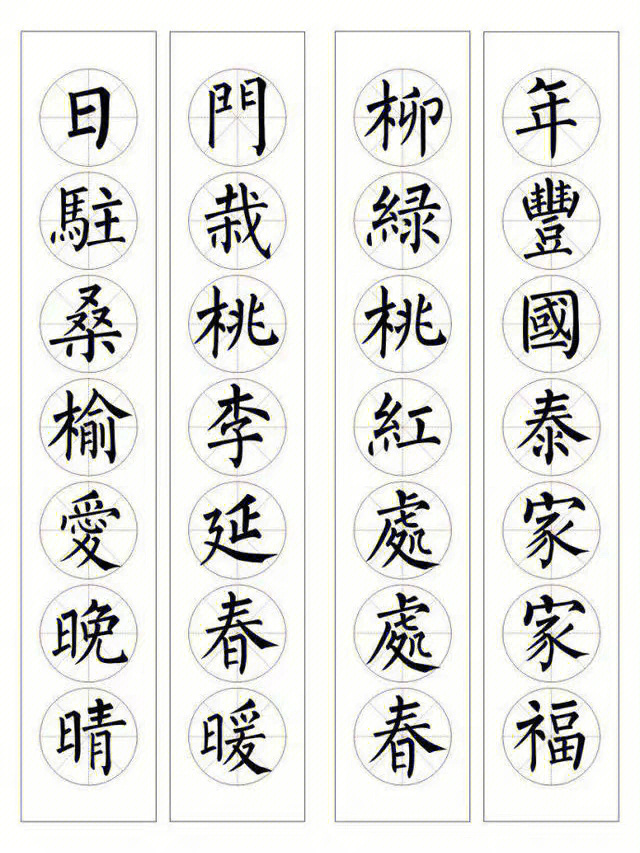 年豐國泰家家福
柳綠桃紅處處春
門栽桃李延春暖
日駐桑榆愛晚晴